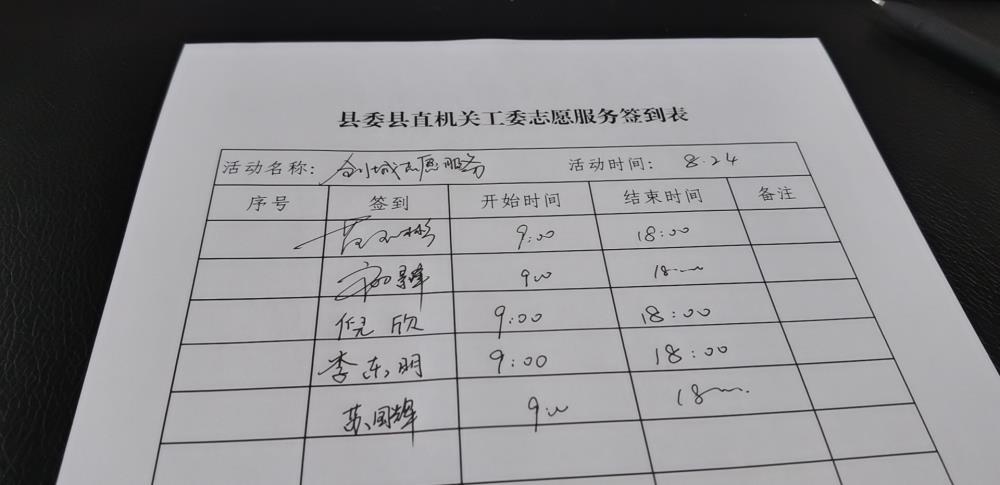 县委县直机关工委志愿服务签到表
活动名称: 创城志愿服务 活动时间: 8.24
序号 签到 开始时间 结束时间 备注
9:00 18:00
9:00 18:00
倪欣 9:00 18:00
李东明 9:00 18:00
苏国辉 9:00 18:00